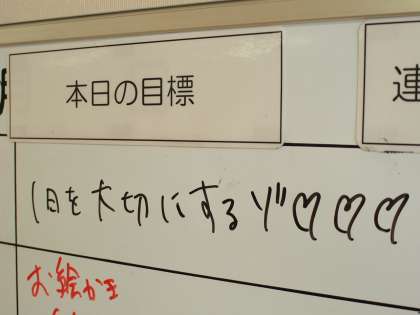 本日の目標
連
1日を大切にするゾ♡♡♡
お絵かき